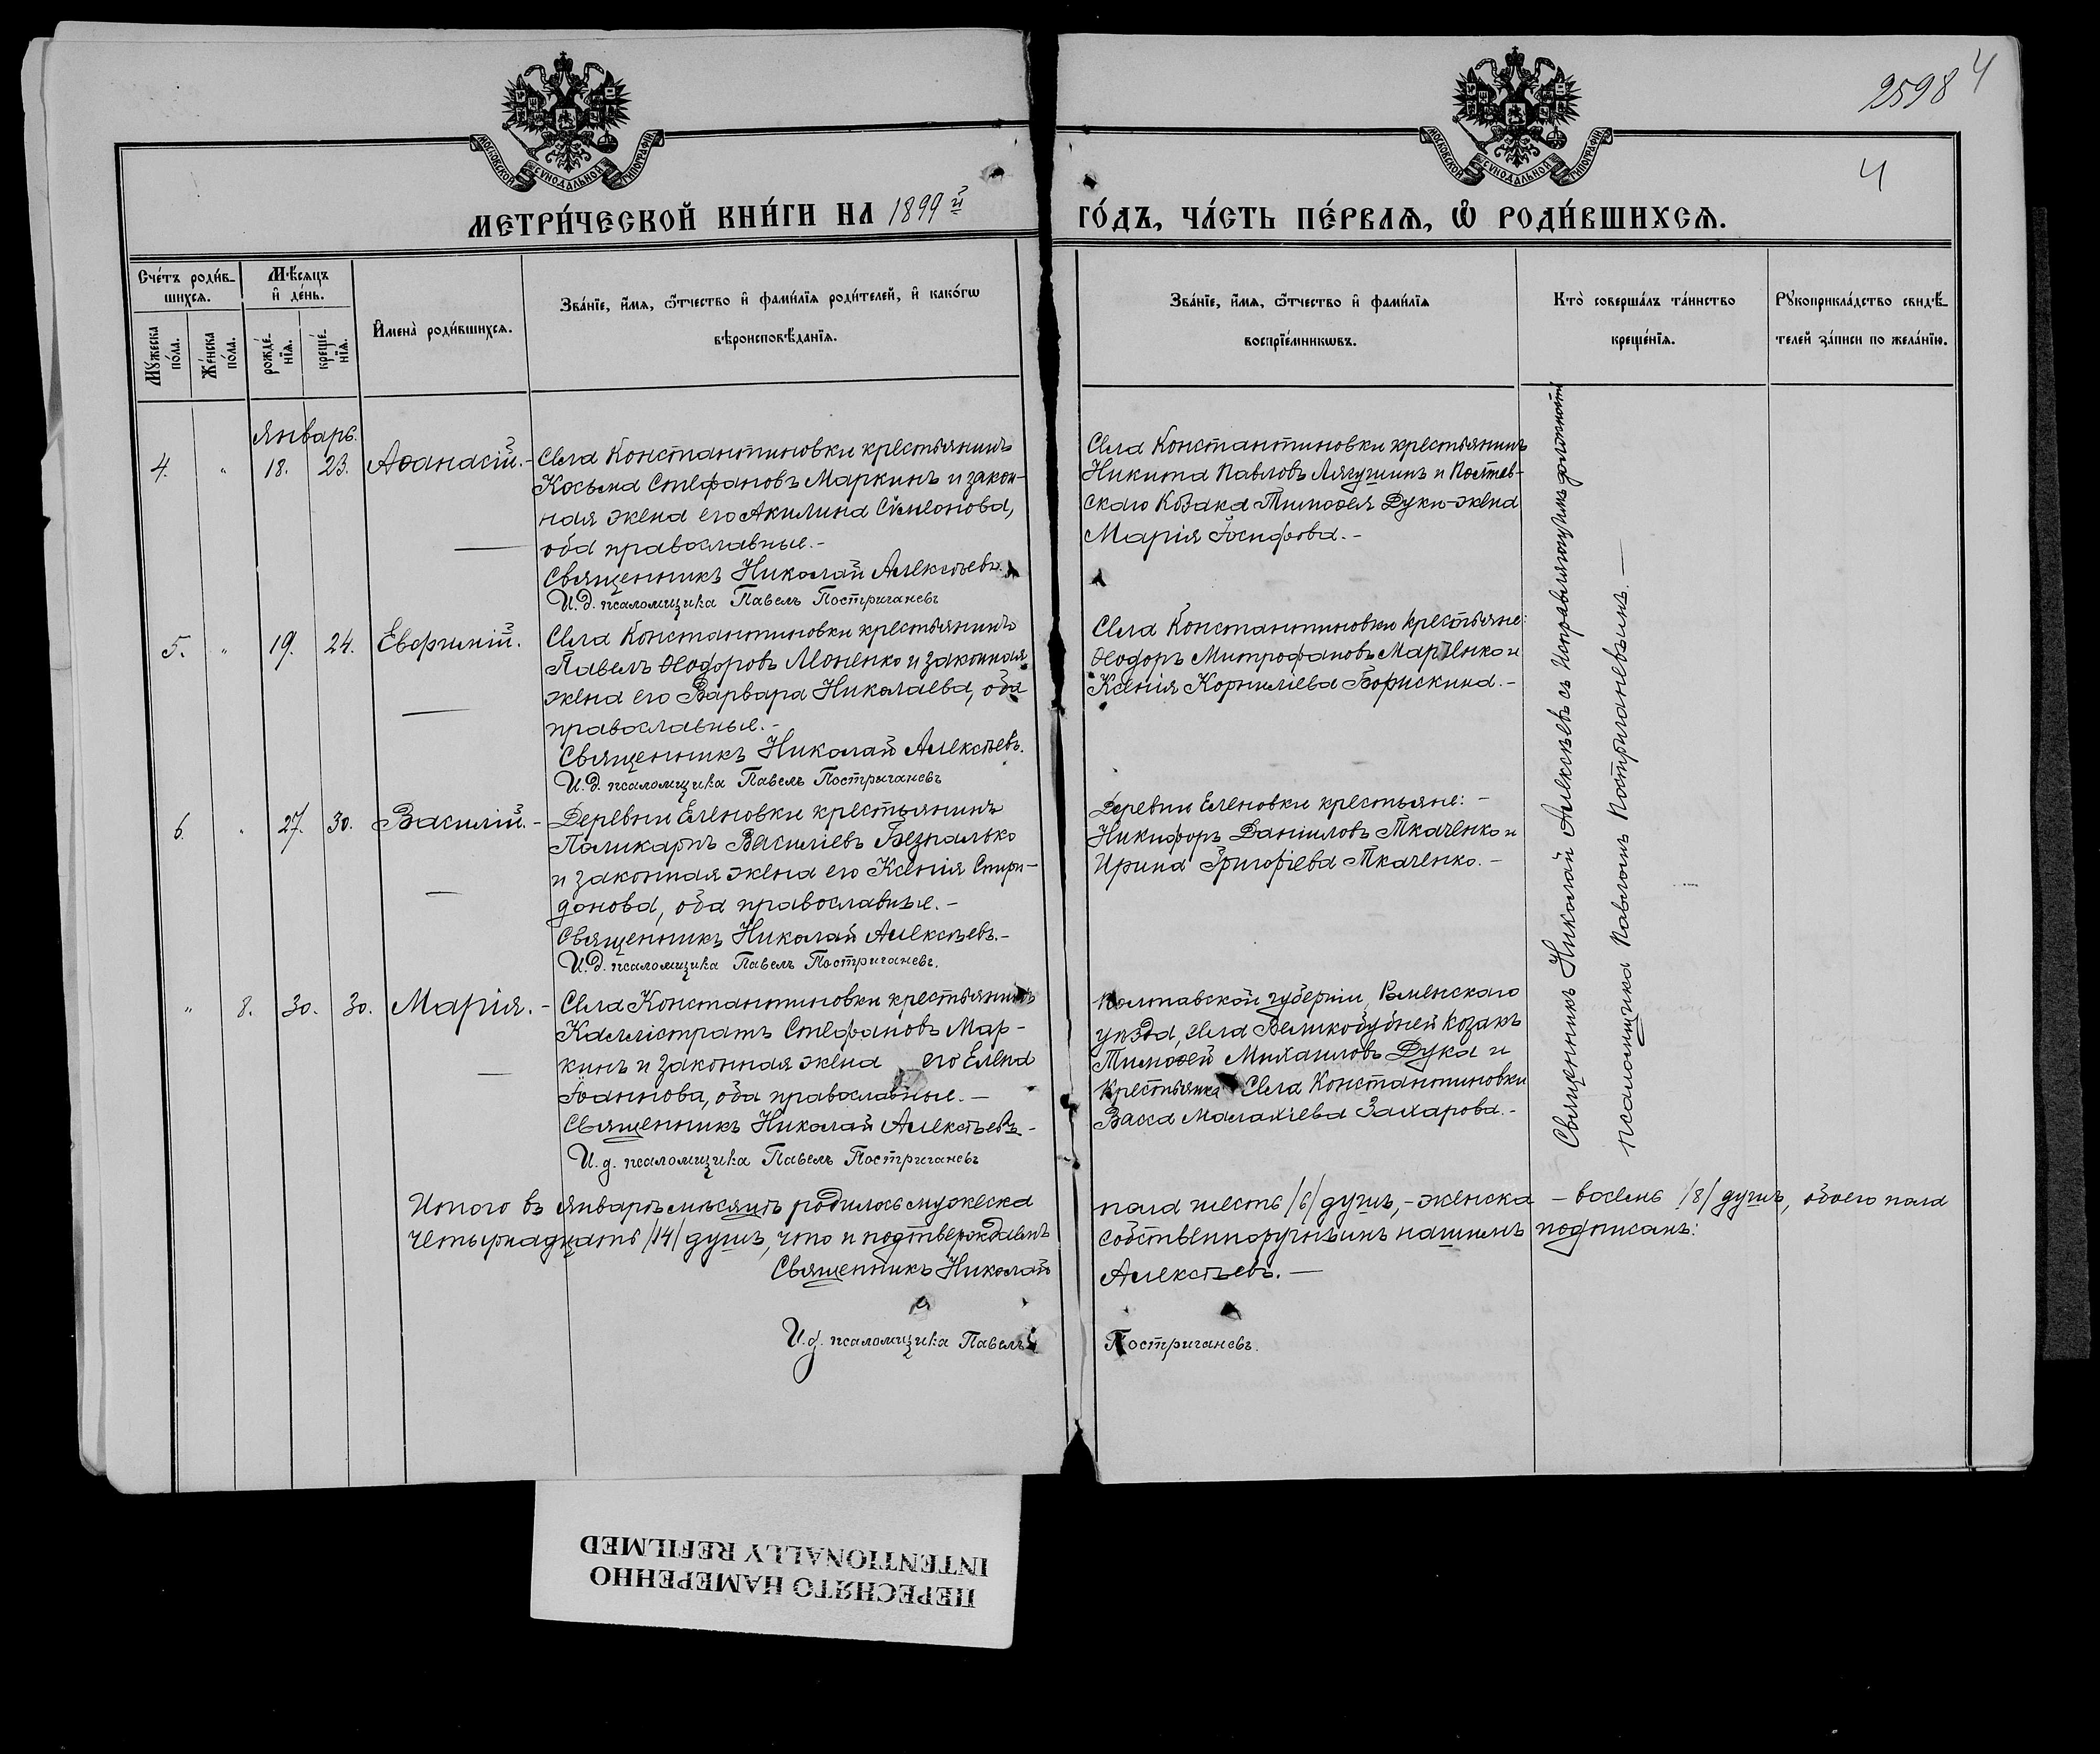 2598 4
4
МОСКОВСКОЙ СѴНОДАЛЬНОЙ ТИПОГРАФІИ
МОСКОВСКОЙ СѴНОДАЛЬНОЙ ТИПОГРАФІИ
МЕТРИ́ЧЕСКОЙ КНИ́ГИ НА 1899й ГО́ДЪ, ЧА́СТЬ ПЕ́РВАѦ, Ѡ҆ РОДИ́ВШИХСѦ.
Сче́тъ роди́в-
шихсѧ.
Мѣ́сѧцъ
и҆ де́нь.
Мꙋ́жеска
по́ла.
Же́нска
по́ла.
рожде́-
нїѧ.
креще́-
нїѧ.
И҆мена̀ роди́вшихсѧ.
Зва́нїе, и҆́мѧ, ѻ҆́тчество и҆ фами́лїѧ роди́телей, и҆ како́гѡ
вѣроисповѣ́данїѧ.
Зва́нїе, и҆́мѧ, ѻ҆́тчество и҆ фами́лїѧ
воспрїе́мникѡвъ.
Кто̀ соверша́лъ та́инство
креще́нїѧ.
Рꙋкоприкла́дство свидѣ́-
телей за́писи по жела́нїю.
Январь.
4. " 18. 23. Аѳанасій.- Села Константиновки крестьянинъ
Косьма Стефановъ Маркинъ и закон-
ная жена его Акилина Сѵмеонова,
оба православные.-
Священникъ Николай Алексѣевъ.
И.д. псаломщика Павелъ Постригачевъ
Села Константиновки крестьянинъ
Никита Павловъ Лягушинъ и Полтав-
скаго Козака Тимоѳея Дуки-жена
Марія Іосифова.-
5. " 19. 24. Евфимій. Села Константиновки крестьянинъ
Павелъ Ѳеодоровъ Моненко и законная
жена его Варвара Николаева, оба
православные.-
Священникъ Николай Алексѣевъ.
И.д. псаломщика Павелъ Постригачевъ
Села Константиновки крестьяне:
Ѳеодоръ Митрофановъ Марченко и
Ксенія Корниліева Борискина.-
6. " 27. 30. Василій.- Деревни Еленовки крестьянинъ
Поликарпъ Василіевъ Безпалько
и законная жена его Ксенія Спири-
донова, оба православные.-
Священникъ Николай Алексѣевъ.-
И.д. псаломщика Павелъ Постригачевъ.
Деревни Еленовки крестьяне:-
Никифоръ Даніиловъ Ткаченко и
Ирина Григоріева Ткаченко.-
" 8. 30. 30. Марія.- Села Константиновки крестьянинъ
Каллистратъ Стефановъ Мар-
кинъ и законная жена его Елена
Іоаннова, оба православные.-
Священникъ Николай Алексѣевъ-
И.д. псаломщика Павелъ Постригачевъ
Полтавской губерніи, Роменскаго
уѣзда, села Великобубней Козакъ
Тимоѳей Михаиловъ Дука и
Крестьянка Села Константиновки
Васса Малахіева Захарова.-
Священникъ Николай Алексѣевъ съ Исправляющимъ должность
псаломщика Павломъ Постригачевымъ.-
Итого въ Январѣ мѣсяцѣ родилось мужеска пола шесть /6/ душъ,- женска - восемь /8/ душъ, обоего пола
четырнадцать /14/ душъ, что и подтверждаемъ собственноручнымъ нашимъ подписомъ:
Священникъ Николай Алексѣевъ.-
И.д. псаломщика Павелъ Постригачевъ.
ПЕРЕСНЯТО НАМЕРЕННО
INTENTIONALLY REFILMED